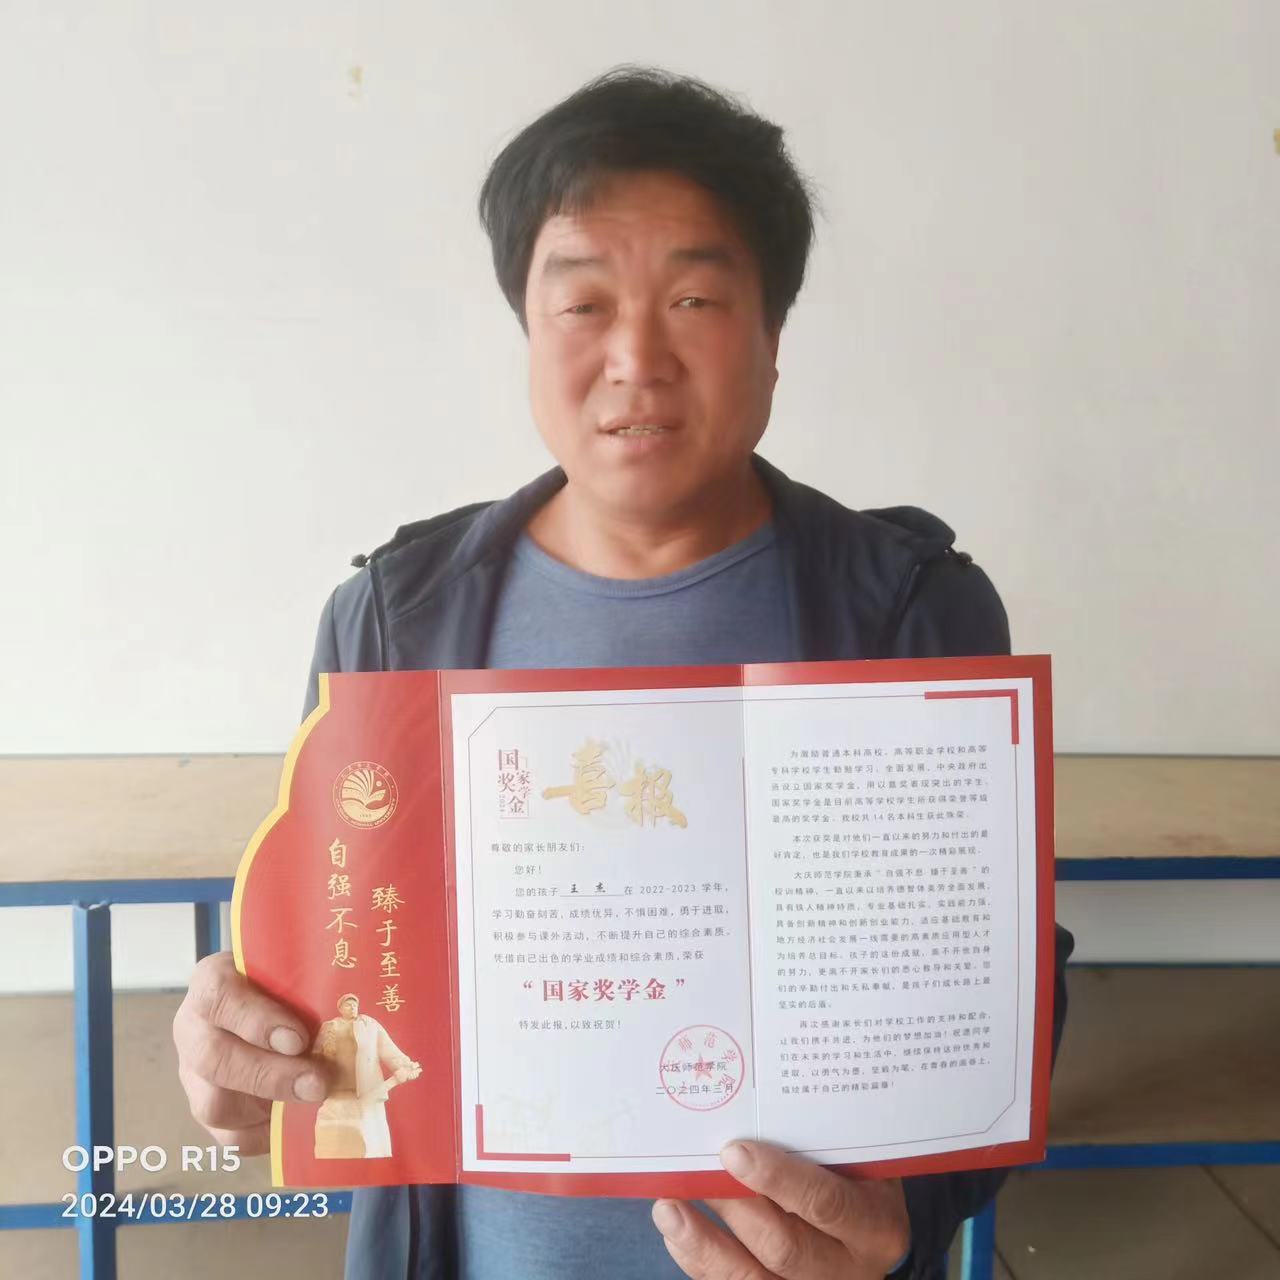 自强不息
臻于至善
国家奖学金
喜报
尊敬的家长朋友们：
您好！
您的孩子 王杰 在 2022-2023 学年，
学习勤奋刻苦，成绩优异，不惧困难，勇于进取，
积极参与课外活动，不断提升自己的综合素质。
凭借自己出色的学业成绩和综合素质，荣获
“国家奖学金”
特发此报，以致祝贺！
大庆师范学院
二〇二四年三月
为激励普通本科高校、高等职业学校和高等
专科学校学生勤勉学习、全面发展，中央政府出
资设立国家奖学金，用以嘉奖表现突出的学生。
国家奖学金是目前高等学校学生所获得荣誉等级
最高的奖学金。我校共14名本科生获此殊荣。
本次获奖是对他们一直以来的努力和付出的最
好肯定，也是我们学校教育成果的一次精彩展现。
大庆师范学院秉承“自强不息 臻于至善”的
校训精神，一直以来以培养德智体美劳全面发展，
具有铁人精神特质，专业基础扎实，实践能力强，
具备创新精神和创新创业能力，适应基础教育和
地方经济社会发展一线需要的高素质应用型人才
为培养总目标。孩子的这份成就，离不开他自身
的努力，更离不开家长们的悉心教导和关爱。您
们的辛勤付出和无私奉献，是孩子们成长路上最
坚实的后盾。
再次感谢家长们对学校工作的支持和配合，
让我们携手共进，为他们的梦想加油！祝愿同学
们在未来的学习和生活中，继续保持这份优秀和
进取，以勇气为墨，坚毅为笔，在青春的画卷上，
描绘属于自己的精彩篇章！
OPPO R15
2024/03/28 09:23